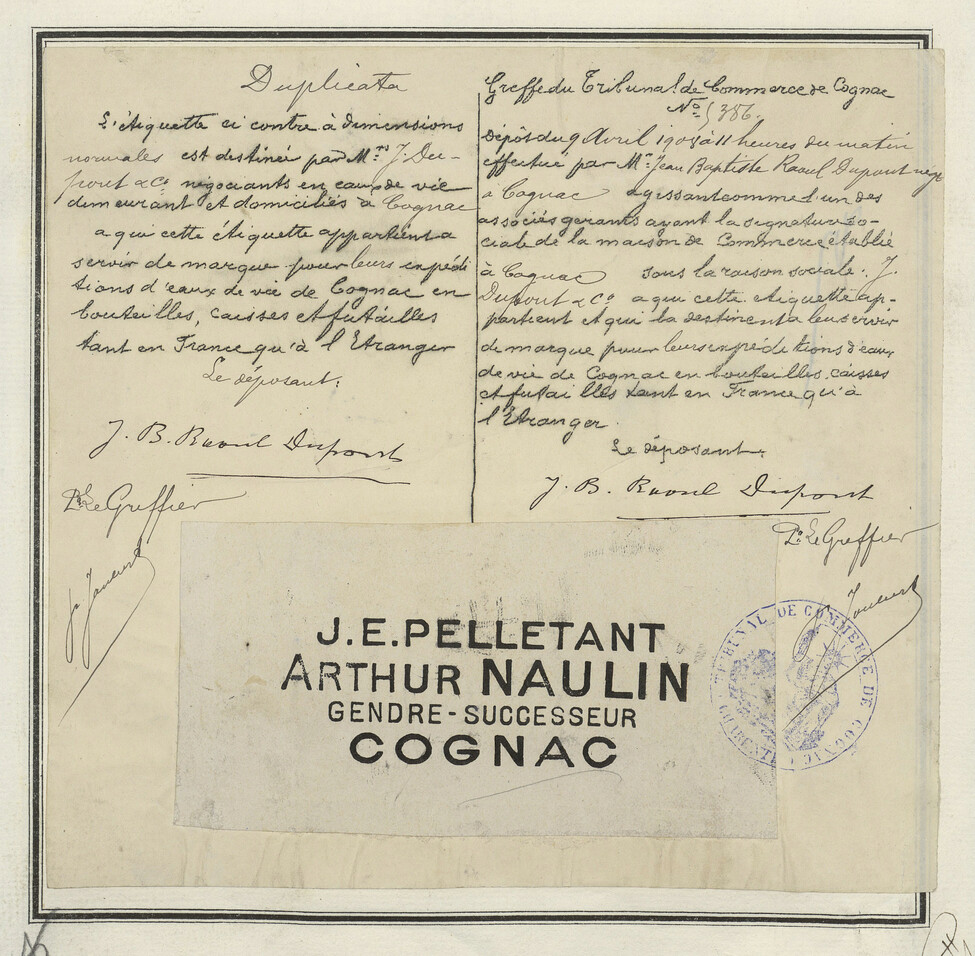 Duplicata
L'étiquette ci contre à dimensions
normales est destinée par Mrs J. Du-
pont & Co négociants en eaux de vie
demeurant et domiciliés à Cognac
a qui cette étiquette appartient a
servir de marque pour leurs expédi
tions d'eaux de vie de Cognac en
bouteilles, caisses et futailles
tant en France qu'à l'Etranger
Le déposant:
J. B. Raoul Dupont
Pr Le Greffier
Greffe du Tribunal de Commerce de Cognac
No 5386.
Dépôt du 9 Avril 1905 à 11 heures du matin
effectué par Mr Jean Baptiste Raoul Dupont négt
a Cognac agissant comme l'un des
associés gerants ayant la signature so-
ciale de la maison de Commerce établie
à Cognac sous la raison sociale: J.
Dupont & Co a qui cette etiquette ap-
partient et qui la destinent a leur servir
de marque pour leurs expéditions d'eaux
de vie de Cognac en bouteilles, caisses
et futailles tant en France qu'à
l'Etranger.
Le déposant:
J. B. Raoul Dupont
Pr Le Greffier
J.E.PELLETANT
ARTHUR NAULIN
GENDRE-SUCCESSEUR
COGNAC
TRIBUNAL DE COMMERCE DE COGNAC
CHARENTE